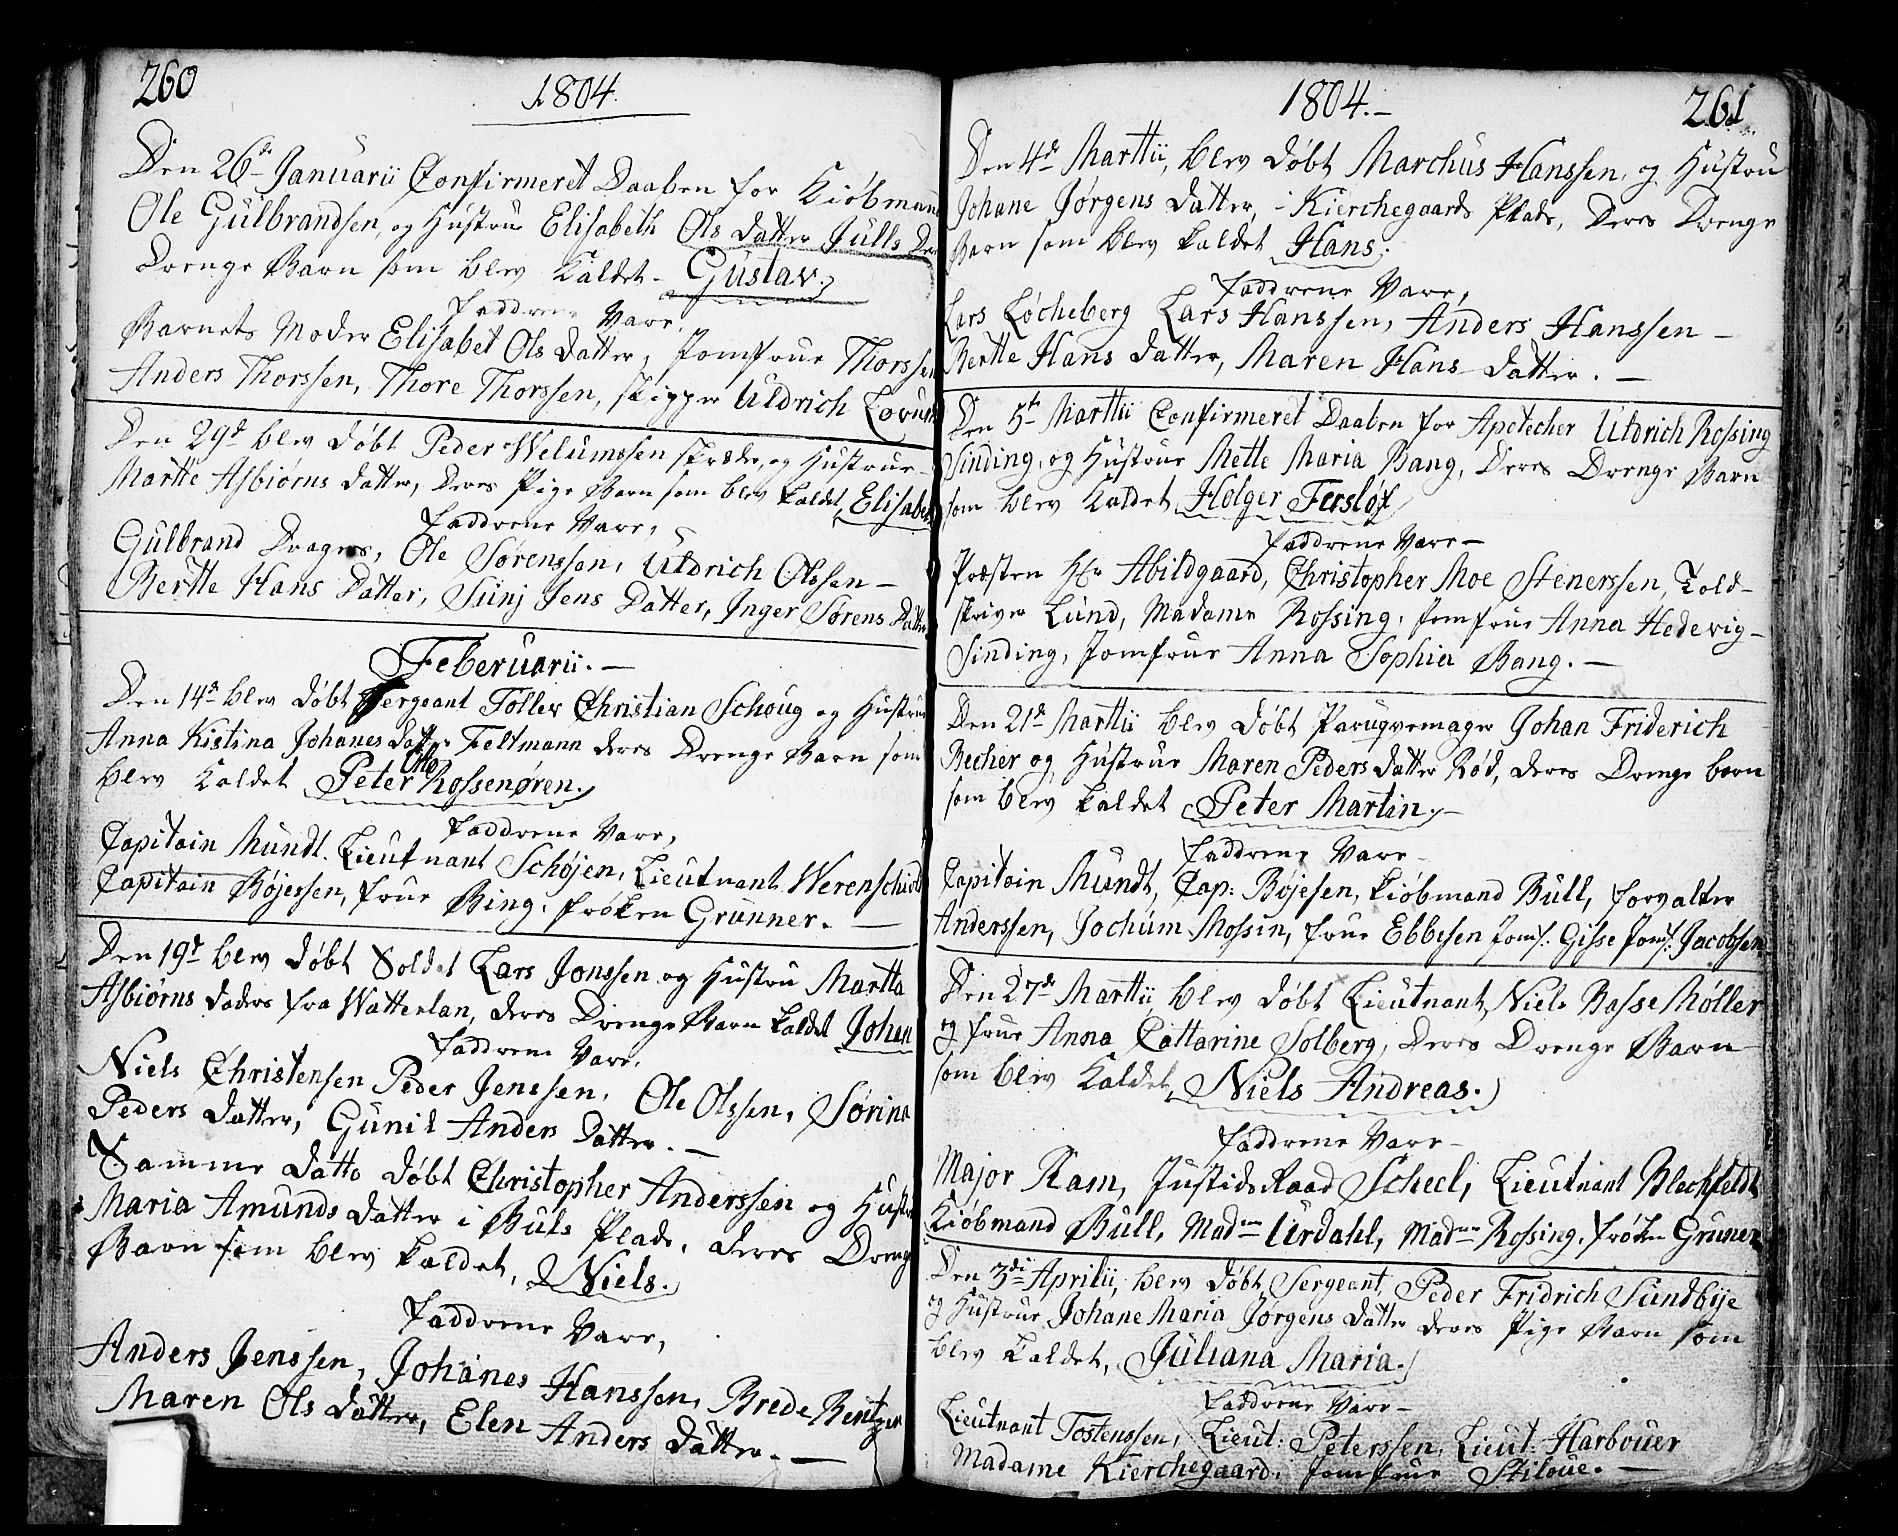 260
1804.
Den 26de Januarii Confirmeret Daaben for Kiøbmand
Ole Gulbrandsen, og Hustrue Elisabeth Ols Datter Julls Der
Drenge Barn som blev Kaldet Gustav.
Faddrene Vare,
Barnets Moder Elisabet Ols Datter, Jomfrue Thorssen
Anders Thorssen, Thore Thorssen, Skipper Uldrich
Den 29de blev Døbt Peder Welumssen og Hustrue
Martte Asbiørns Datter, Deres Pige Barn som blev kaldet Elisabeth
Faddrene Vare,
Gulbrand Ole Sørenssen, Uldrich Olssen
Bertte Hans Datter, Siinj Jens Datter, Inger Sørens Datter
Feberuarii.
Den 14de blev Døbt Sergeant Toller Christian Schoug og Hustrue
Anna Kistina Johanes Datter Feltmann deres Drenge Barn som
blev Kaldet Peter Otto Rossenøren.
Faddrene Vare,
Capitain Mundt. Lieutnant Schøjen, Lieutnant Werenschiold
Capitain Bøjessen, Frue Bing, Frøken Grunner.
Den 19de blev Døbt Soldat Lars Jonssen og Hustru Martta
Asbiørns Daders fra Watterlan, deres Drenge Barn kaldet Johan
Faddrene Vare,
Niels Christensen Peder Jenssen, Ole Olssen, Sørina
Peders Datter, Gunil Anders Datter.
Samme Datto Døbt Christopher Anderssen og Hustrue
Maria Amunds Datter i Buls Plads, deres Drenge
Barn som blev kaldet, Niels.
Faddrene Vare,
Anders Jenssen, Johanes Hanssen, Brede Bentzen
Maren Ols Datter, Elen Anders Datter.
1804.
261
Den 4de Marttii, blev Døbt Marchus Hanssen, og Hustru
Johane Jørgens Datter, Kierchegaards Plads, Deres Drenge
Barn som blev kaldet Hans.
Faddrene Vare,
Lars Løcheberg Lars Hanssen, Anders Hanssen
Bertte Hans Datter, Maren Hans Datter.
Den 5te Marttii Confirmeret Daaben for Apotecher Uldrich Rossing
Sinding, og Hustrue Mette Maria Bang, Deres Drenge Barn
som blev Kaldet Holger Fersløf
Faddrene Vare
Præsten Hr Abildgaard, Christopher Moe Stenerssen, Told-
skriver Lund, Madame Rossing, Jomfrue Anna Hedevig
Sinding, Jomfrue Anna Sophia Bang.
Den 21de Marttii blev Døbt Paruqvemager Johan Friderich
Becher og Hustrue Maren Peders Datter Rød, deres Drenge barn
som blev kaldet Peter Martin.
Faddrene Vare
Capitain Mundt, Cap: Bøjesen, Kiøbmand Bull, Forvalter
Anderssen, Jochum Mossin, Frue Ebbesen Jomf: Gisse Jomf: Jacobsen
Den 27de Marttii blev Døbt Lieutnant Niels Basse Møller
og Frue Anna Cattarine Solberg, Deres Drenge Barn
som blev Kaldet Niels Andreas.
Faddrene Vare
Major Ram, Justids Raad Scheel, Lieutnant Blechfeldt
Kiøbmand Bull, Madme Urdahl, Madme Rossing, Frøken Gruner
Den 3di Aprilii, blev Døbt Sergeant Peder Fridrich Sundbÿe
og Hustrue Johane Maria Jørgens Datter deres Pige Barn som
blev Kaldet, Juliana Maria.
Faddrene Vare
Lieutnant Tostenssen, Lieut: Peterssen, Lieut: Harbouer
Madame Kierchegaard, Jomfrue Stiloue.